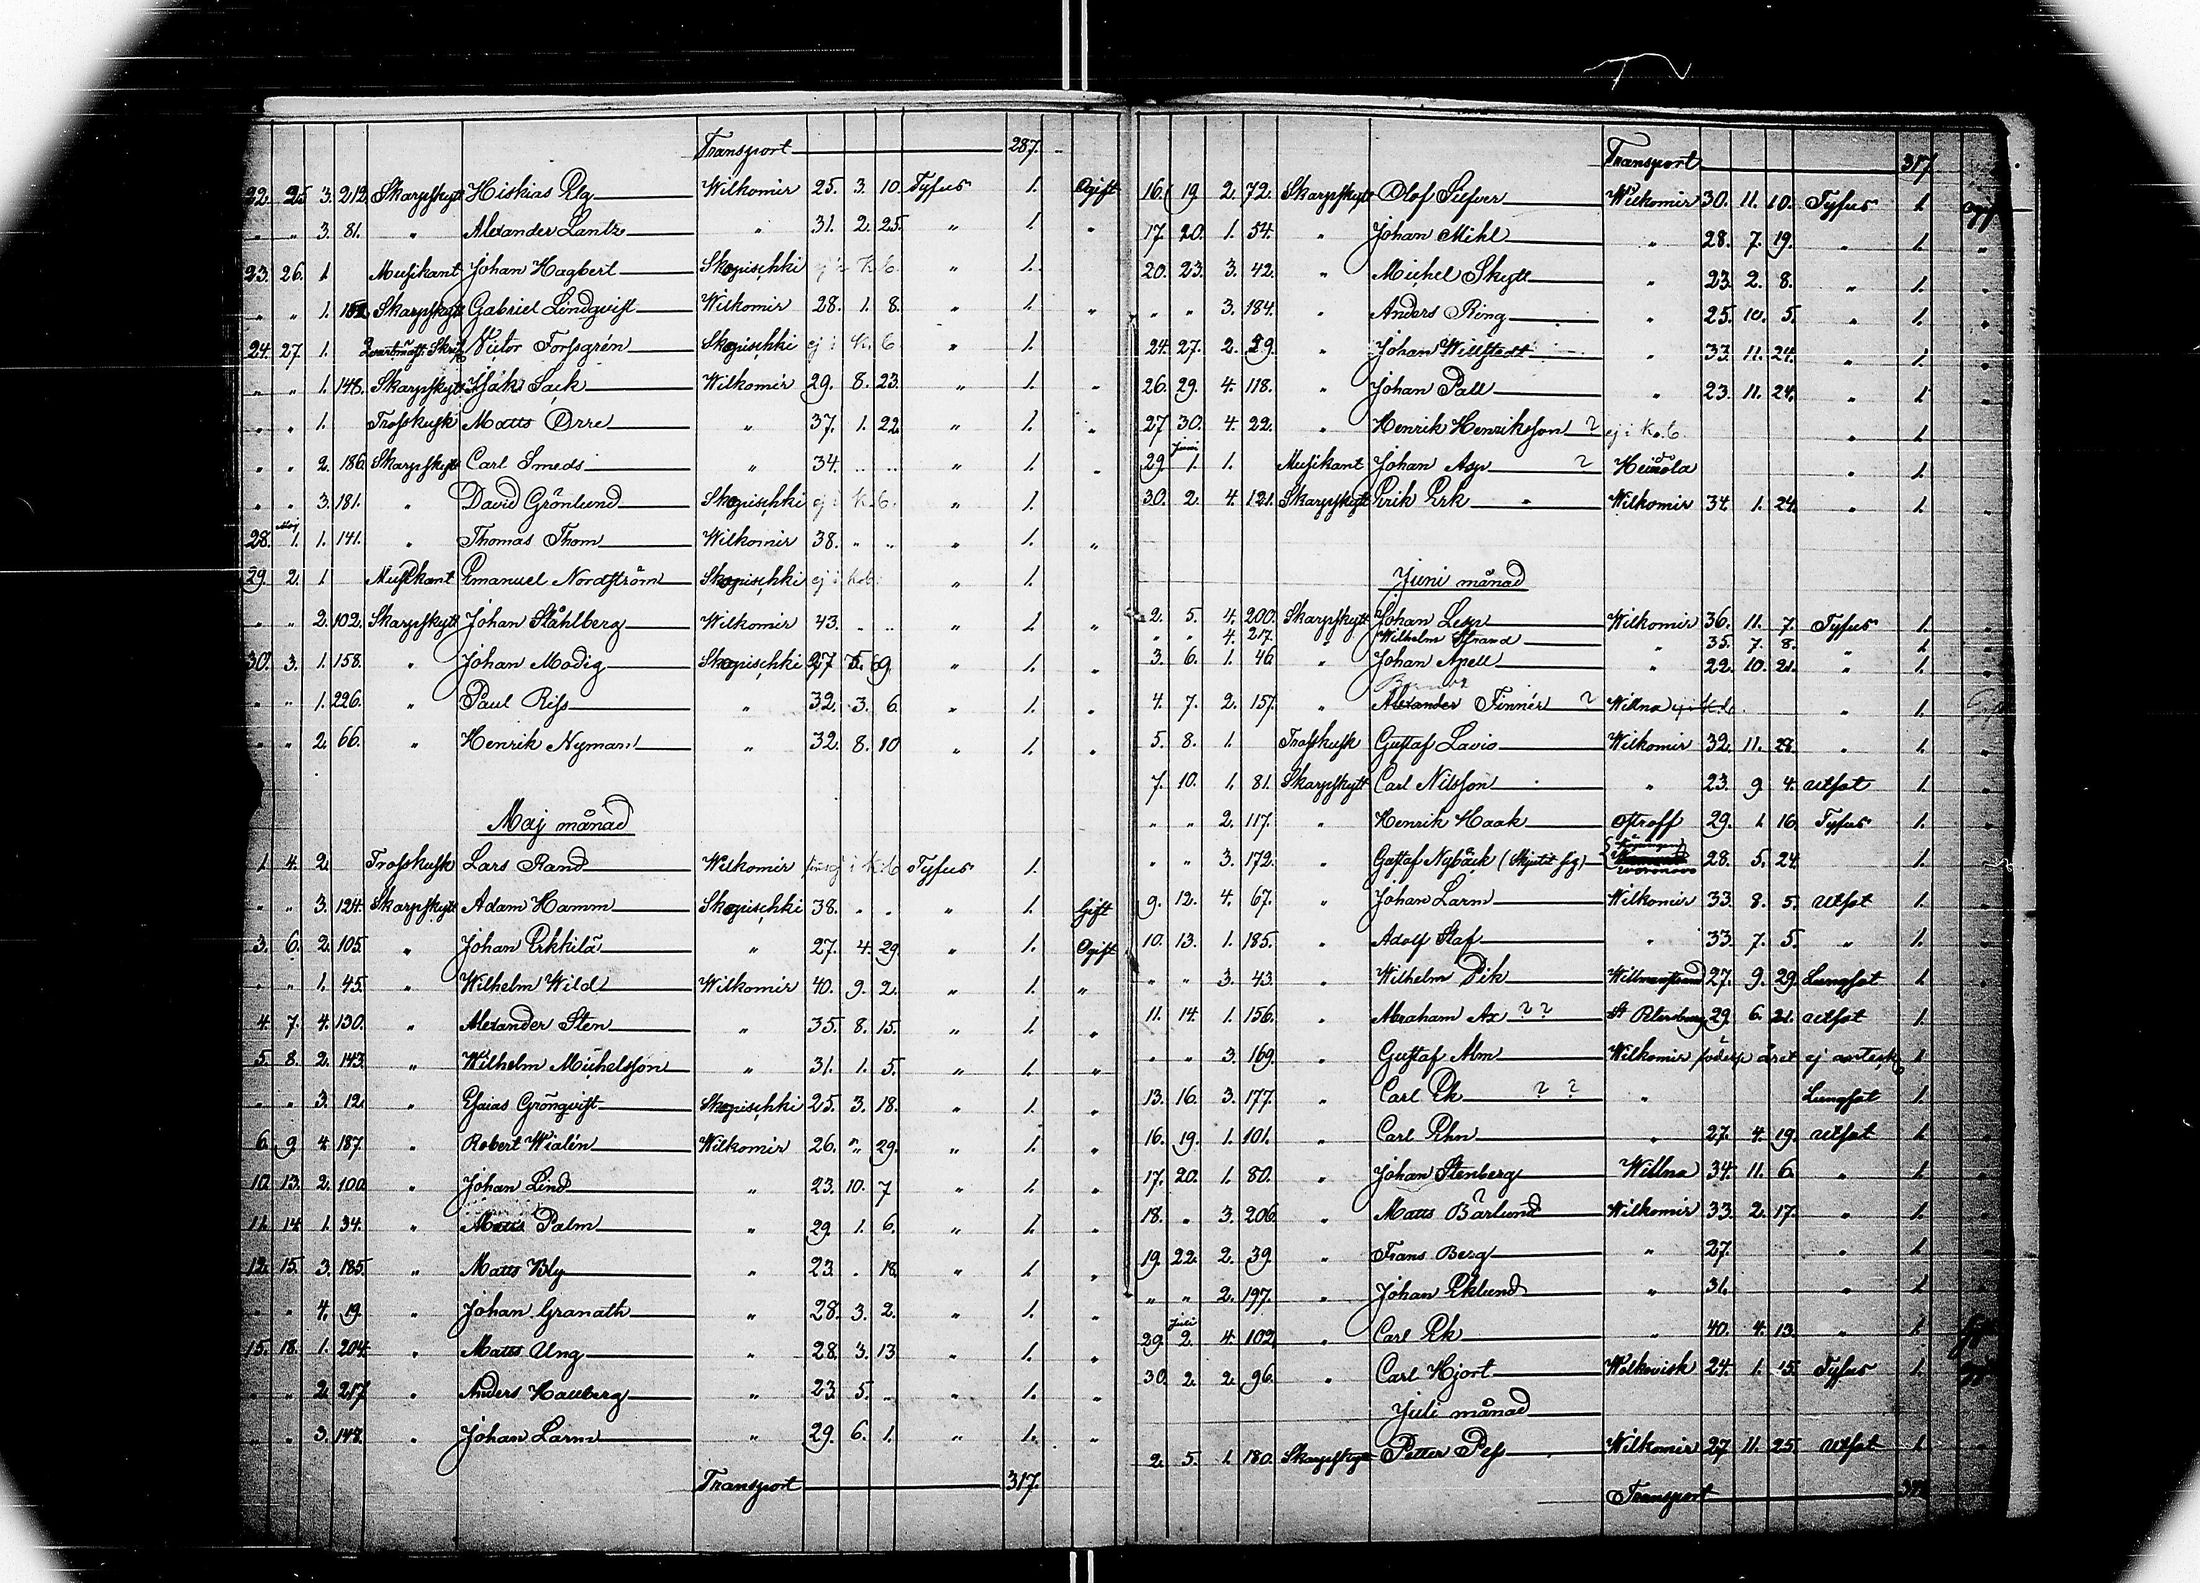 Transport 287.
22. 25. 3. 212. Skarpskytt Hiskias Elg Wilkomir 25. 3. 10. Tyfus 1. Ogift
„ „ 3. 81. „ Alexander Lantz „ 31. 2. 25. „ 1. „
23. 26. 1 Musikant Johan Hagbert Skopischki ej i K.b. „ 1.
„ „ 1. Skarpskytt Gabriel Lindqvist Wilkomir 28. 1. 8. „ 1. „
24. 27. 1. Victor Forssgrén Skopischki ej i K.b „ 1.
„ „ 1. 148. Skarpskytt Isak Sack Wilkomir 29. 8. 23. „ 1. „
„ „ 1. Trosskusk Matts Orre „ 37. 1. 22. „ 1. „
„ „ 2. 186. Skarpskytt Carl Smeds „ 34. „ „ „ 1. „
„ „ 3. 181. „ David Grönlund Skopischki ej i K.b. „ 1.
Maj
28. 1. 1. 141. „ Thomas Thom Wilkomir 38. „ „ „ 1. „
29. 2. 1 Musikant Emanuel Nordström Skopischki ej i K.b. „ 1.
„ „ 2. 102. Skarpskytt Johan Ståhlberg Wilkomir 43. „ „ „ 1. „
30. 3. 1. 158. „ Johan Modig Skopischki 27 9. „ 1. „
„ „ 1. 226. „ Paul Riss „ 32. 3. 6 „ 1. „
„ „ 2. 66. „ Henrik Nyman „ 32. 8. 10 „ 1. „
Maj månad
1. 4. 2. Trosskusk Lars Rand Wilkomir i K.b Tyfus 1.
„ „ 3. 124. Skarpskytt Adam Hamm Skopischki 38. „ „ „ 1. Gift
3. 6. 2. 105. „ Johan Erkkilä „ 27. 4. 29. „ 1. Ogift
„ „ 1. 45. „ Wilhelm Wild Wilkomir 40. 9. 2. „ 1. „
4. 7. 4. 130. „ Alexander Sten „ 35. 8. 15. „ 1. „
5. 8. 2. 143. „ Wilhelm Michelsson „ 31. 1. 5. „ 1. „
„ „ 3. 12. „ Esaias Grönqvist Skopischki 25. 3. 18. „ 1. „
6. 9. 4. 187. „ Robert Wialén Wilkomir 26. „ 29. „ 1. „
10. 13. 2. 100. „ Johan Lind „ 23. 10. 7 „ 1. „
11. 14. 1. 34. „ Matts Palm „ 29. 1. 6. „ 1. „
12. 15. 3. 185. „ Matts Bly „ 23. „ 18. „ 1. „
„ „ 4. 19. „ Johan Granath „ 28. 3. 2. „ 1. „
15. 18. 1. 204. „ Matts Ung „ 28. 3. 13 „ 1. „
„ „ 2. 217. „ Anders Hallberg „ 23. 5. „ „ 1. „
„ „ 3. 148. „ Johan Larm „ 29. 6. 1. „ 1. „
Transport 317.
Transport 317
16. 19. 2. 72. Skarpskytt Olof Silfver Wilkomir 30. 11. 10. Tyfus 1. Ogift
17. 20. 1. 54. „ Johan Mihl „ 28. 7. 19. „ 1. „
20. 23. 3. 42. „ Michel Skytt „ 23. 2. 8. „ 1. „
„ „ 3. 184. „ Anders Ring „ 25. 10. 5. „ 1. „
24. 27. 2. 29. „ Johan Willstedt „ 33. 11. 24. „ 1. „
26. 29. 4. 118. „ Johan Pall „ 23. 11. 24. „ 1 „
27 30. 4. 22. „ Henrik Henriksson ? ej i K.b. „ 1
Juni
29. 1. 1. Musikant Johan Asp ? Heinola „ 1
30. 2. 4. 121. Skarpskytt Erik Erk Wilkomir 34. 1. 24. „ 1. „
Juni månad
2. 5. 4. 200. Skarpskytt Johan Lesp Wilkomir 36. 11. 7. Tyfus 1. „
„ „ 4. 217. „ Wilhelm Strand „ 35. 7. 8. „ 1. „
3. 6. 1. 46. „ Johan Apell „ 22. 10. 21. „ 1. „
4. 7. 2. 157. „ Alexander Finnér ? Willna ej i K.b. „ 1.
5. 8. 1. Trosskusk Gustaf Lavio Wilkomir 32. 11. 28. „ 1. „
7. 10. 1. 81. Skarpskytt Carl Nilsson „ 23. 9. 4. Utsot 1. „
„ „ 2. 117. „ Henrik Haak Ostroff 29. 1. 16. Tyfus 1. „
„ „ 3. 172. „ Gustaf Nybäck (Skjutit sig) Woronovo 28. 5. 24. 1. „
9. 12. 4. 67. „ Johan Larm Wilkomir 33. 8. 5. Utsot 1. „
10. 13. 1. 185. „ Adolf Staf „ 33. 7. 5. „ 1. „
„ „ 3. 43. „ Wilhelm Pik Willmanstrand 27. 9. 29. Lungsot 1. „
11. 14. 1. 156. „ Abraham Ax ? ? St Petersburg 29. 6. 21. Utsot 1.
„ „ 3. 169. „ Gustaf Alm Wilkomir året ej 1
13. 16. 3. 177. „ Carl Ek ? ? „ Lungsot 1. „
16. 19. 1. 101. „ Carl Ehn „ 27. 4. 19. Utsot 1. „
17. 20. 1. 80. „ Johan Stenberg Willna 34. 11. 6. „ 1. „
18. „ 3. 206. „ Matts Bärlund Wilkomir 33. 2. 17. „ 1. „
19. 22. 2. 39. „ Frans Berg „ 27. „ 1. „
„ „ 2. 197. „ Johan Eklund „ 31. „ 1. „
Juli
29. 2. 4. 102. „ Carl Ek „ 40. 4. 13. „ 1.
30. 2. 2. 96. „ Carl Hjort Wolkovisk 24. 1. 15. Tyfus 1.
Juli månad
2. 5. 1. 180. Skarpskytt Petter Pess Wilkomir 27. 11. 25. Utsot 1. „
Transport